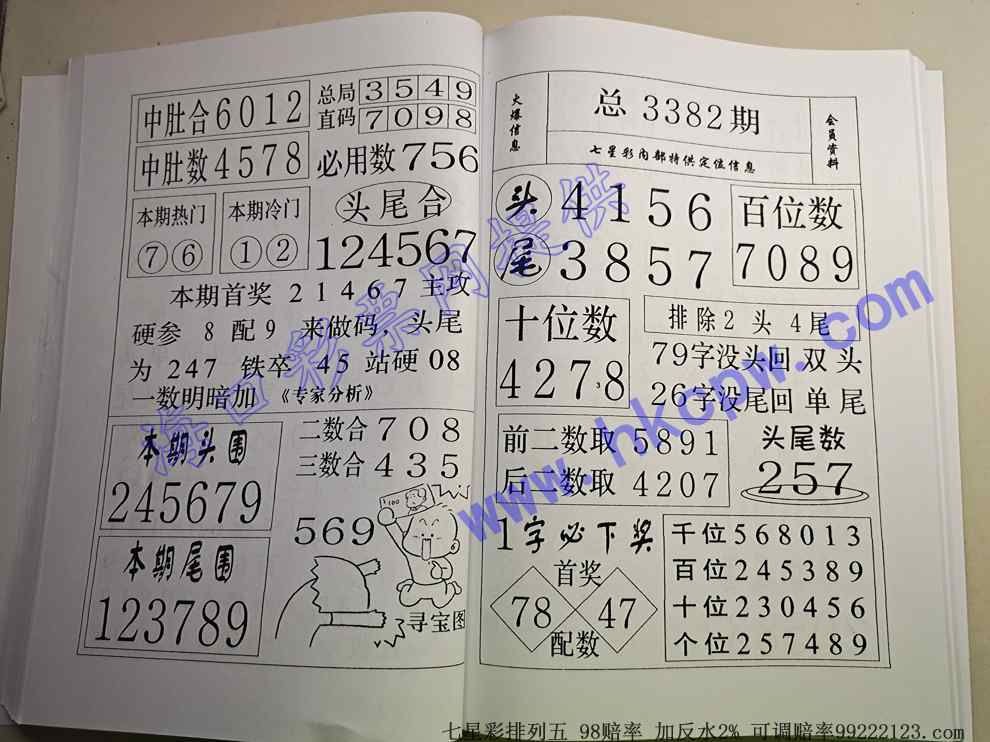 中肚合6012
总局3549
直码7098
中肚数4578
必用数756
本期热门
⑦⑥
本期冷门
①②
头尾合
124567
本期首奖 21467 主攻
硬参 8 配 9 来做码，头尾
为 247 铁卒 45 站硬 08
一数明暗加 《专家分析》
本期头围
245679
二数合 708
三数合 435
569
寻宝图
本期尾围
123789
火爆信息
总 3382 期
七星彩内部特供定位信息
会员资料
头 4156
尾 3857
百位数
7089
十位数
4278
排除2头4尾
79字没头回 双头
26字没尾回 单尾
前二数取 5891
后二数取 4207
头尾数
257
1字必下奖
首奖
78 47
配数
千位 568013
百位 245389
十位 230456
个位 257489
海口彩票网提供
www.hkcpw.com
七星彩排列五 98赔率 加反水2% 可调赔率99222123.com